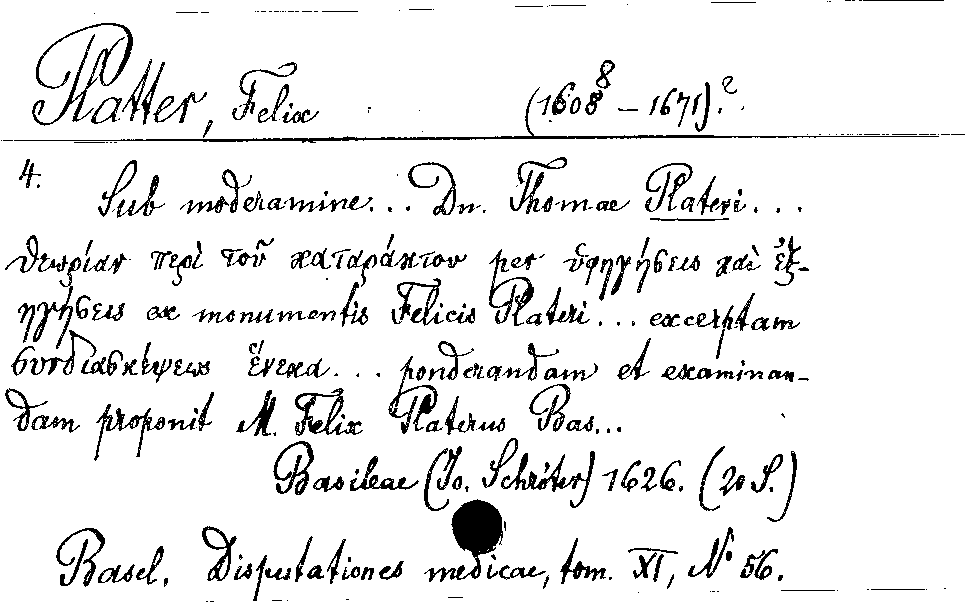 Platter, Felix (1608 8 – 1671).?
4.
Sub moderamine... Dn. Thomae Plateri...
θεωρίαν περὶ τοῦ καταράκτου per ὑφηγήσεις καὶ ἐξ-
ηγήσεις ex monumentis Felicis Plateri... excerptam
συνδιασκέψεως ἕνεκα... ponderandam et examinan-
dam proponit M. Felix Platerus Bas...
Basileae (Jo. Schröter) 1626. (20 S.)
Basel. Disputationes medicae, tom. XI, No 56.